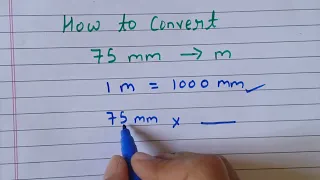 How to Convert
75 mm → m
1 m = 1000 mm ✓
75 mm × ___